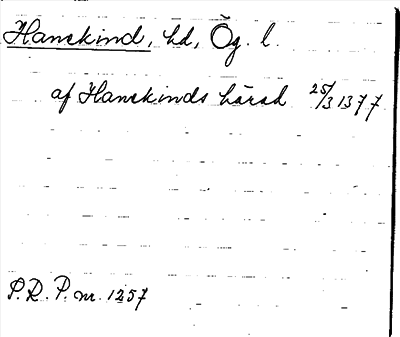 Hanekind, hd, Ög. l.
af Hanekinds härad 25/3 1377
P.R.P. nr. 1257